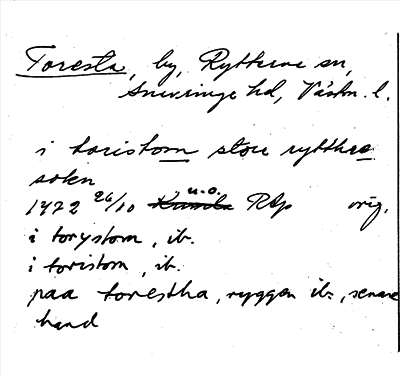 Toresta, by, Rytterne sn,
Snevringe hd, Västm. l.
i toristom store rytthre
sokn
1472 26/10 u.o. Rap orig.
i torystom, ib.
i toristom, ib.
paa torestha, ryggen ib., senare
hand